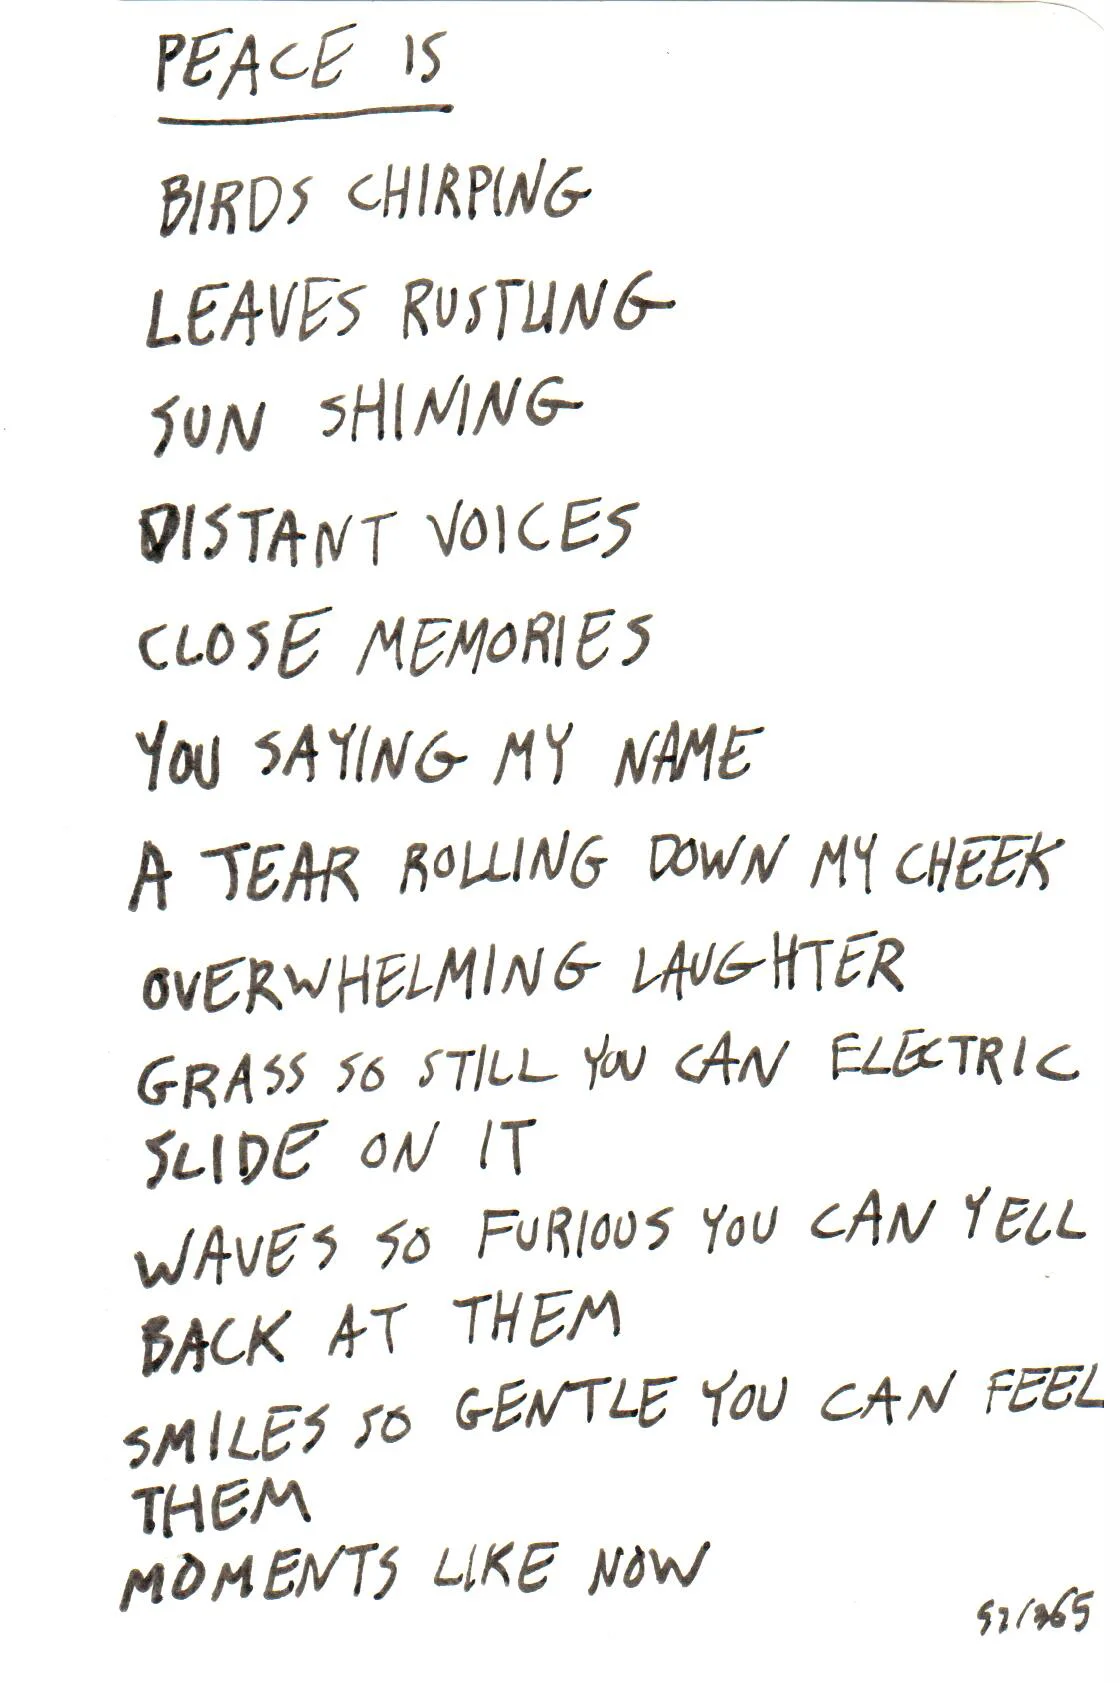 PEACE IS
BIRDS CHIRPING
LEAVES RUSTLING
SUN SHINING
DISTANT VOICES
CLOSE MEMORIES
YOU SAYING MY NAME
A TEAR ROLLING DOWN MY CHEEK
OVERWHELMING LAUGHTER
GRASS SO STILL YOU CAN ELECTRIC
SLIDE ON IT
WAVES SO FURIOUS YOU CAN YELL
BACK AT THEM
SMILES SO GENTLE YOU CAN FEEL
THEM
MOMENTS LIKE NOW
57/365